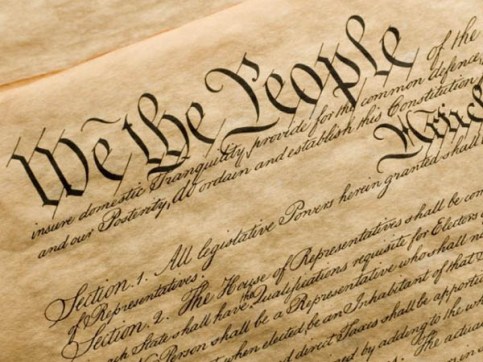 We the People of the
insure domestic Tranquility, provide for the common defence
and our Posterity, do ordain and establish this Constitution
Article
Section. 1. All legislative Powers herein granted shall
of Representatives.
Section. 2. The House of Representatives shall be com
each State shall have the Qualifications requisite for Electors
No Person shall be a Representative who shall no
not, when elected, be an Inhabitant of that
and direct Taxes shall be apportio
by adding to the who
The actual